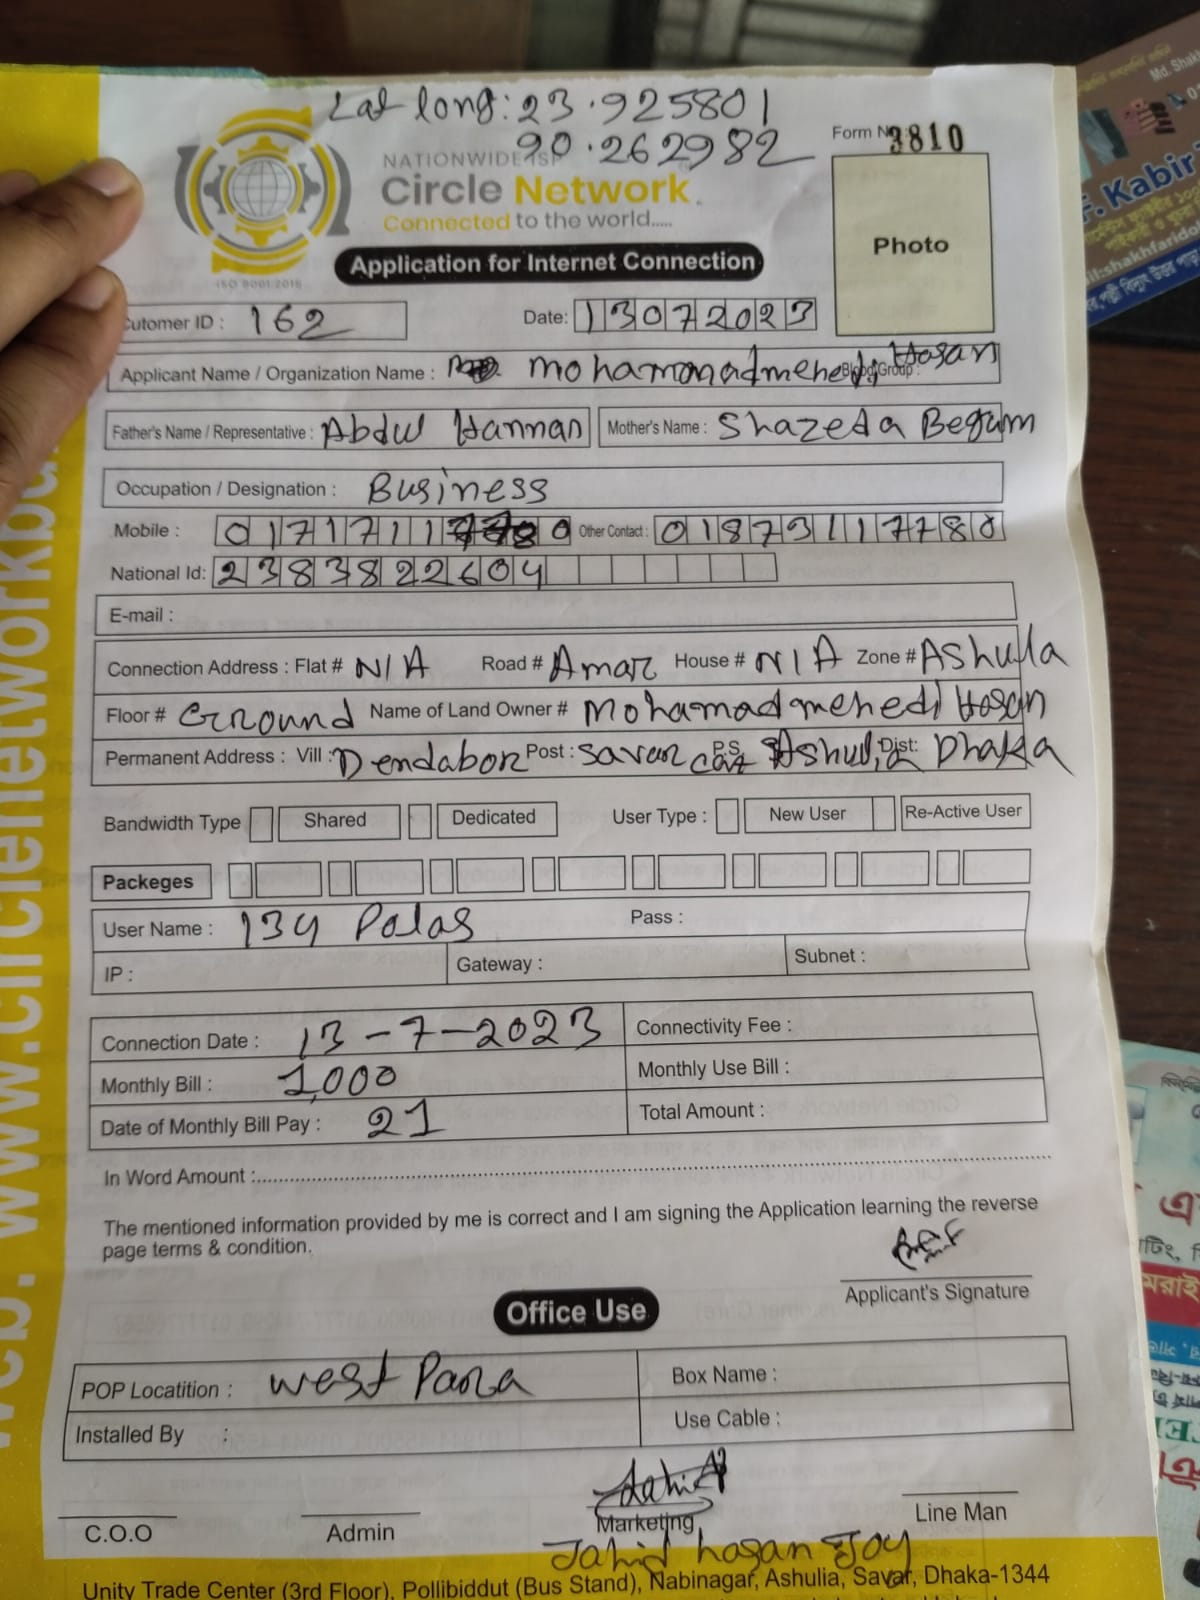 Lat long: 23.925801
90.262982
Form No 3810
NATIONWIDE ISP
Circle Network
Connected to the world.....
ISO 9001:2015
Photo
Application for Internet Connection
Cutomer ID : 162
Date: 13072023
Applicant Name / Organization Name : mohammadmehedi Hosan Blood Group :
Father's Name / Representative : Abdul Hannan Mother's Name : Shazeda Begum
Occupation / Designation : Business
Mobile : 0171711 0 Other Contact : 01873117780
National Id: 2383822604
E-mail :
Connection Address : Flat # N/A Road # Amar House # N/A Zone # Ashulia
Floor # Ground Name of Land Owner # Mohamad mehedi Hosan
Permanent Address : Vill : Dendabor Post : Savar P.S Ashulia Dist: Dhaka
Bandwidth Type Shared Dedicated User Type : New User Re-Active User
Packeges
User Name : 134 Palas Pass :
IP : Gateway : Subnet :
Connection Date : 13-7-2023 Connectivity Fee :
Monthly Bill : 1,000 Monthly Use Bill :
Date of Monthly Bill Pay : 21 Total Amount :
In Word Amount :
The mentioned information provided by me is correct and I am signing the Application learning the reverse
page terms & condition.
Applicant's Signature
Office Use
POP Locatition : west Para Box Name :
Installed By : Use Cable :
C.O.O Admin Marketing Line Man
Jahid hasan Joy
Unity Trade Center (3rd Floor), Pollibiddut (Bus Stand), Nabinagar, Ashulia, Savar, Dhaka-1344
F. Kabir